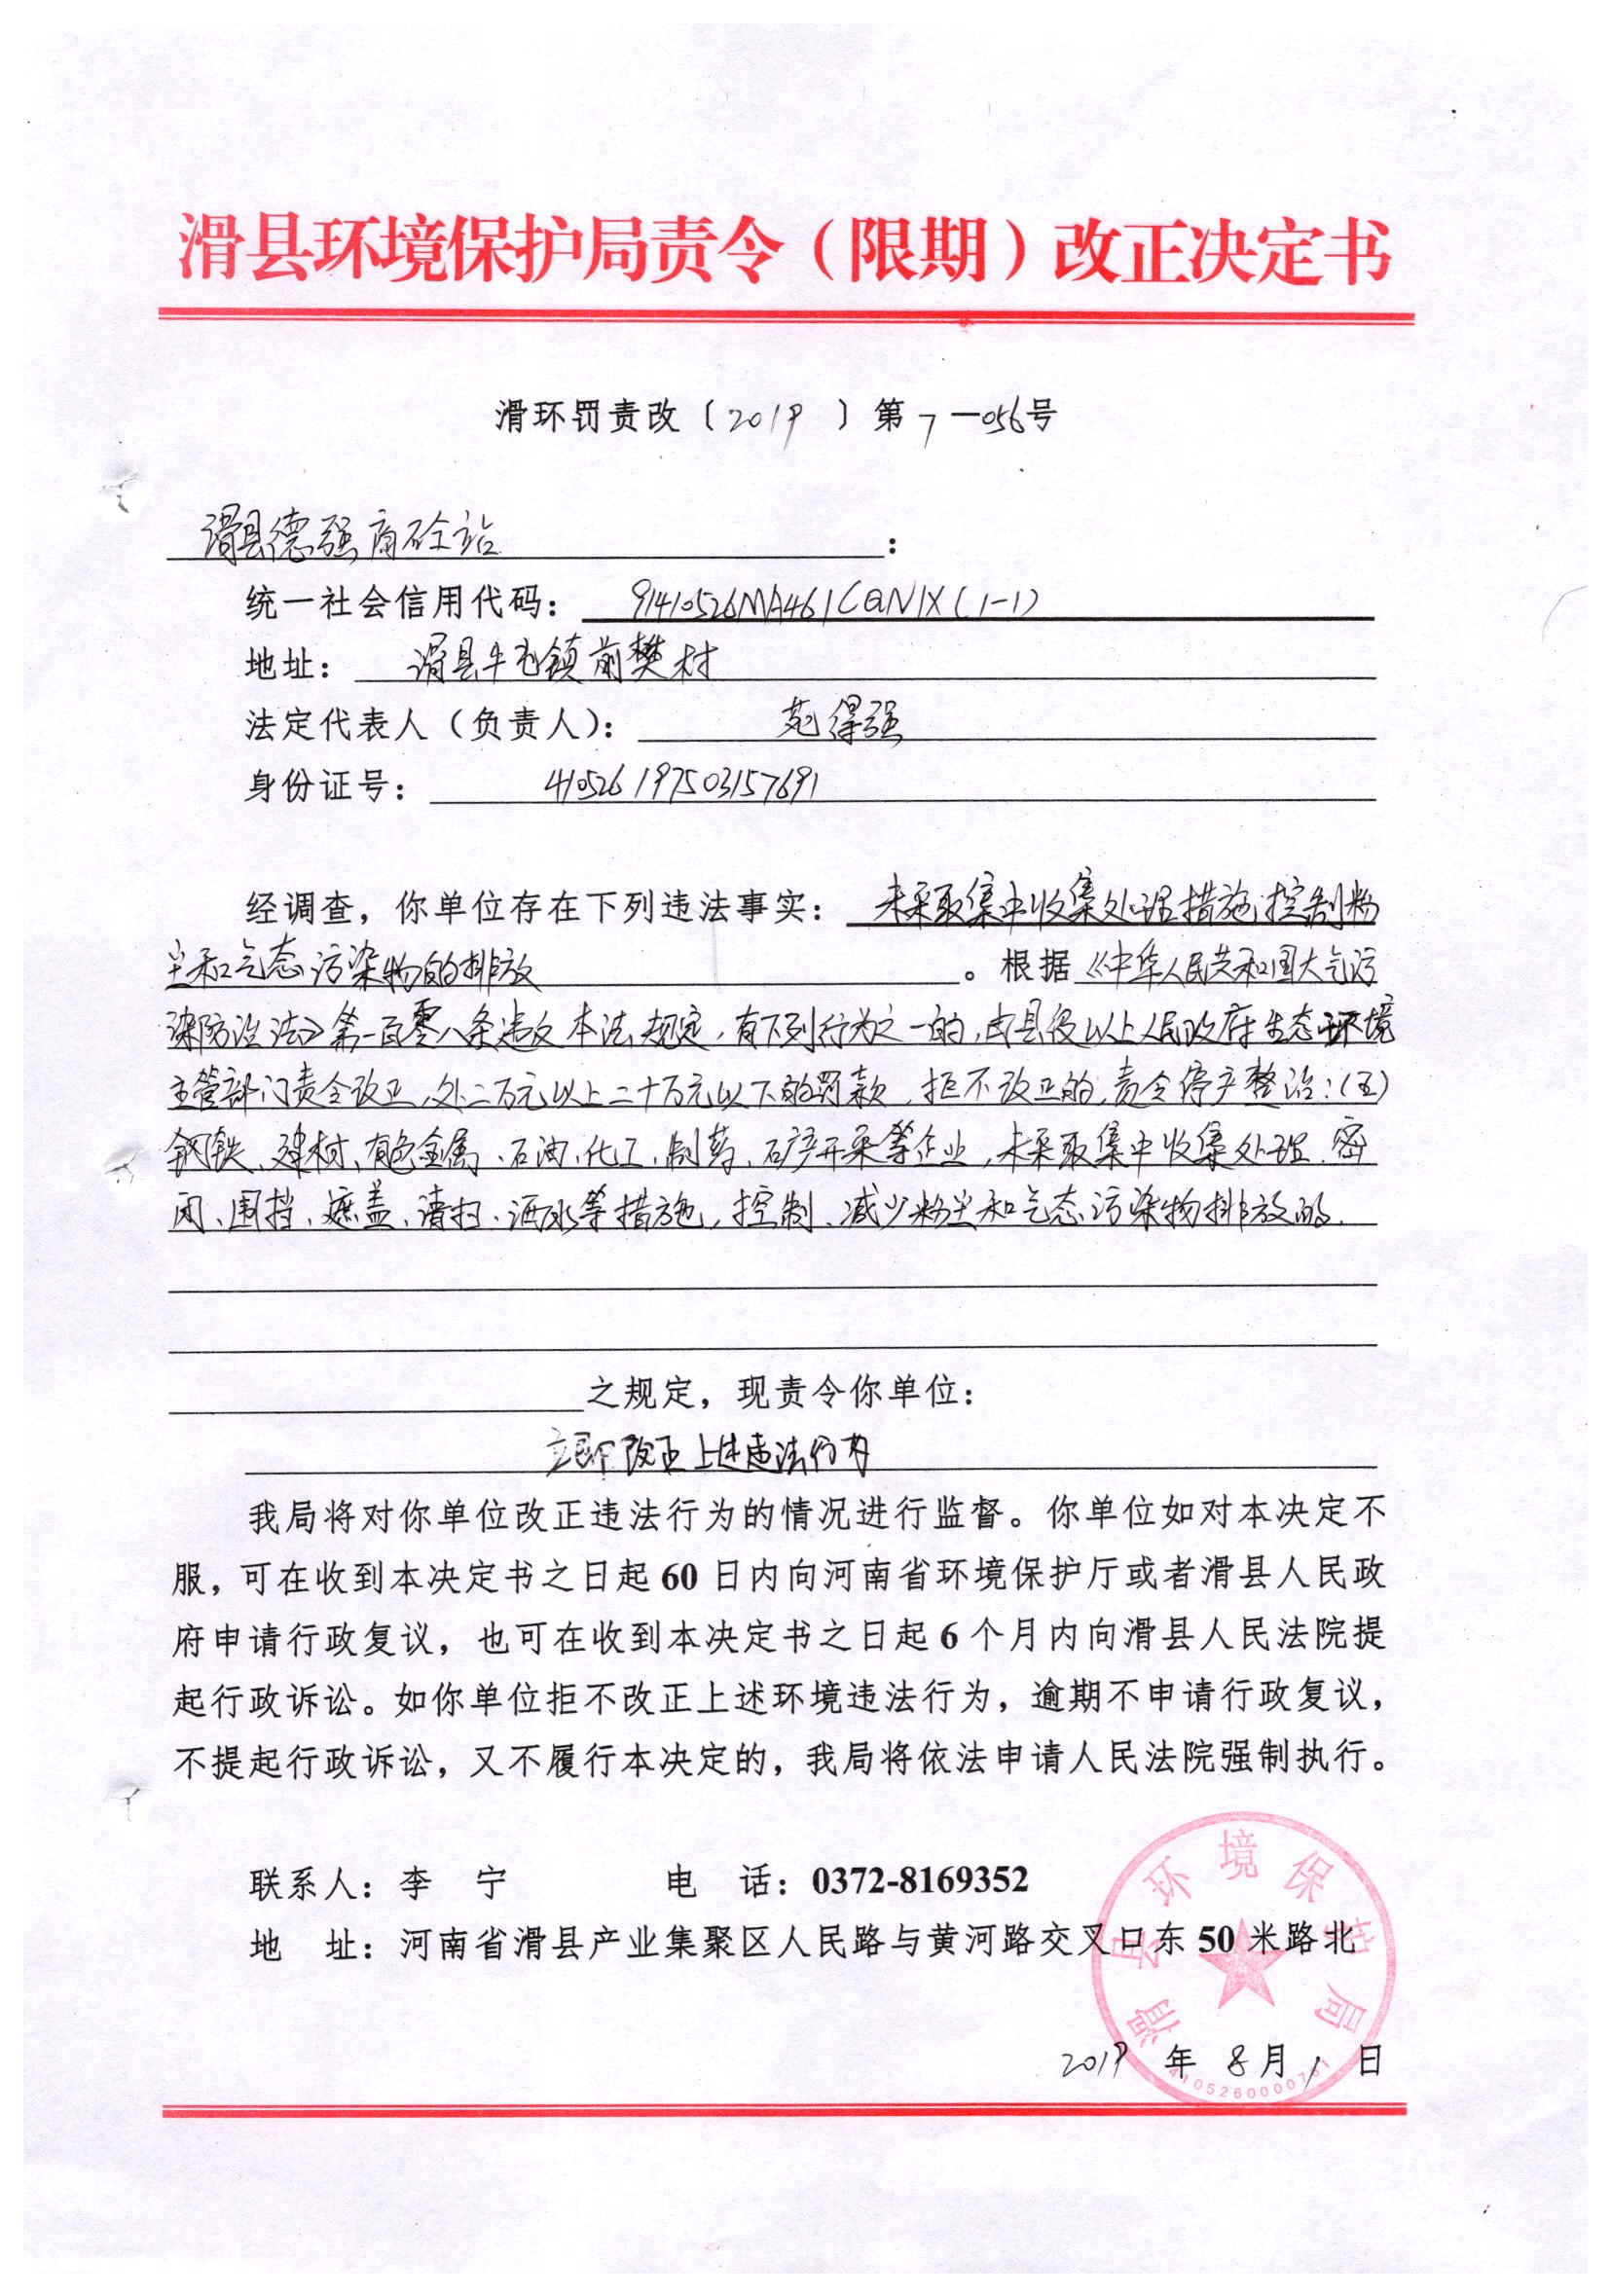 滑县环境保护局责令（限期）改正决定书
滑环罚责改〔2019〕第7-056号
滑县德强商砼站：
统一社会信用代码：91410526MA461CQN1X(1-1)
地址：滑县牛屯镇前樊村
法定代表人（负责人）：苑得强
身份证号：410526197503157691
经调查，你单位存在下列违法事实：未采取集中收集处理措施，控制粉
尘和气态污染物的排放。根据《中华人民共和国大气污
染防治法》第一百零八条违反本法规定，有下列行为之一的，由县级以上人民政府生态环境
主管部门责令改正，处二万元以上二十万元以下的罚款，拒不改正的，责令停产整治：（五）
钢铁、建材、有色金属、石油、化工、制药、矿产开采等企业，未采取集中收集处理、密
闭、围挡、遮盖、清扫、洒水等措施，控制、减少粉尘和气态污染物排放的
之规定，现责令你单位：
立即改正上述违法行为
我局将对你单位改正违法行为的情况进行监督。你单位如对本决定不
服，可在收到本决定书之日起60日内向河南省环境保护厅或者滑县人民政
府申请行政复议，也可在收到本决定书之日起6个月内向滑县人民法院提
起行政诉讼。如你单位拒不改正上述环境违法行为，逾期不申请行政复议，
不提起行政诉讼，又不履行本决定的，我局将依法申请人民法院强制执行。
联系人：李 宁 电 话：0372-8169352
地 址：河南省滑县产业集聚区人民路与黄河路交叉口东50米路北
滑县环境保护局
2019年8月1日